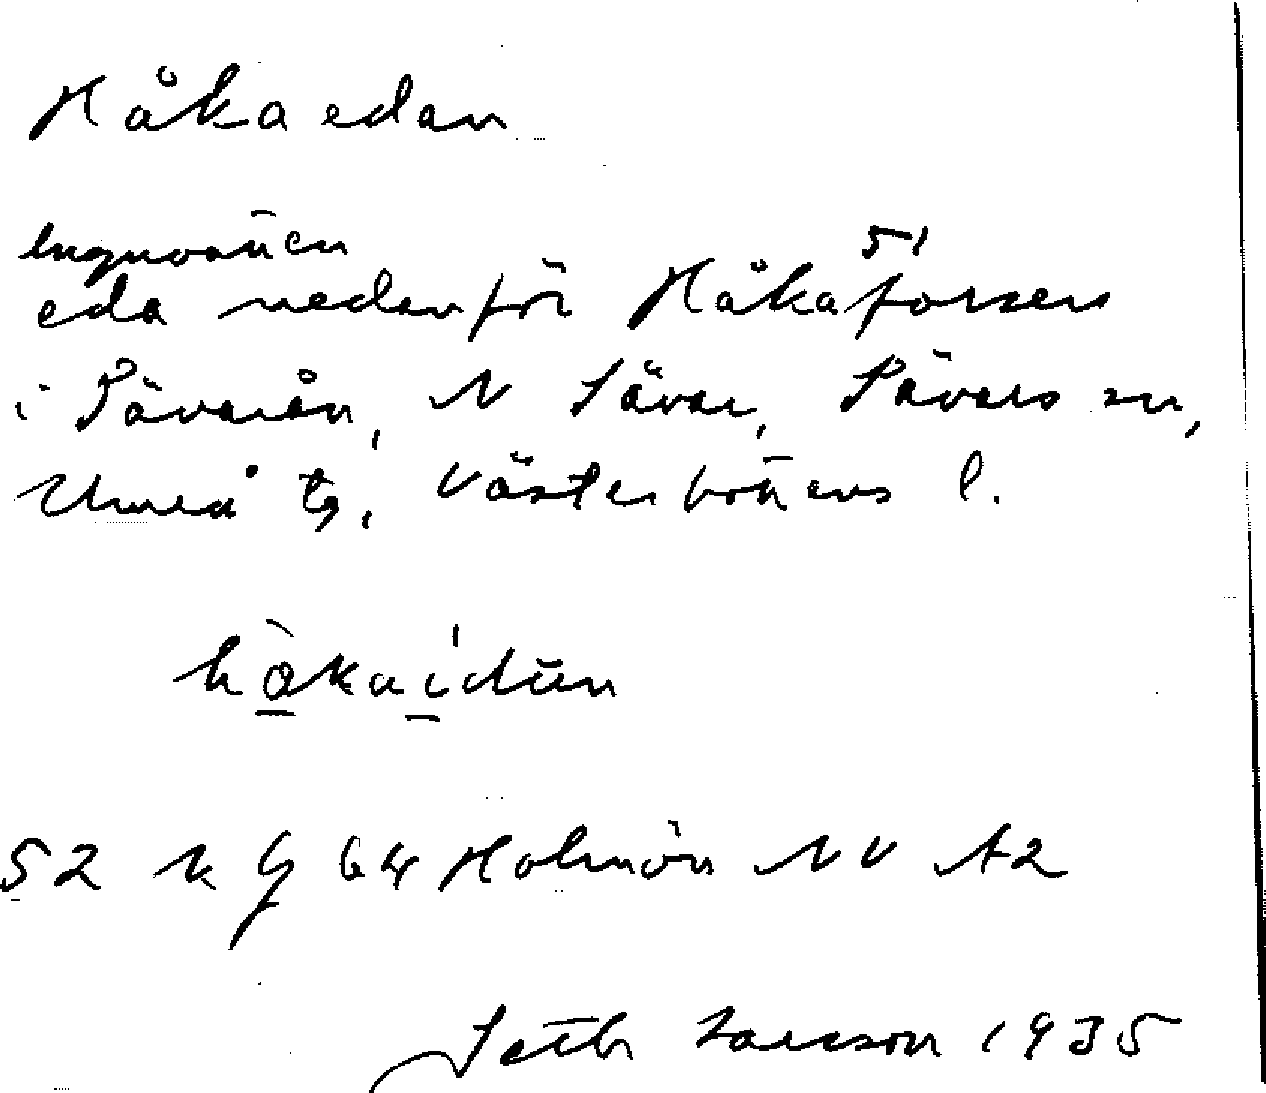 Håkaedan
lugnvattnen 51
eda nedanför Håkaforsen
i Sävarån, N Sävar, Sävars sn,
Umeå tg, Västerbottens l.
håkaidan
52 k g 64 Holmön NV A2
Seth Larsson 1935